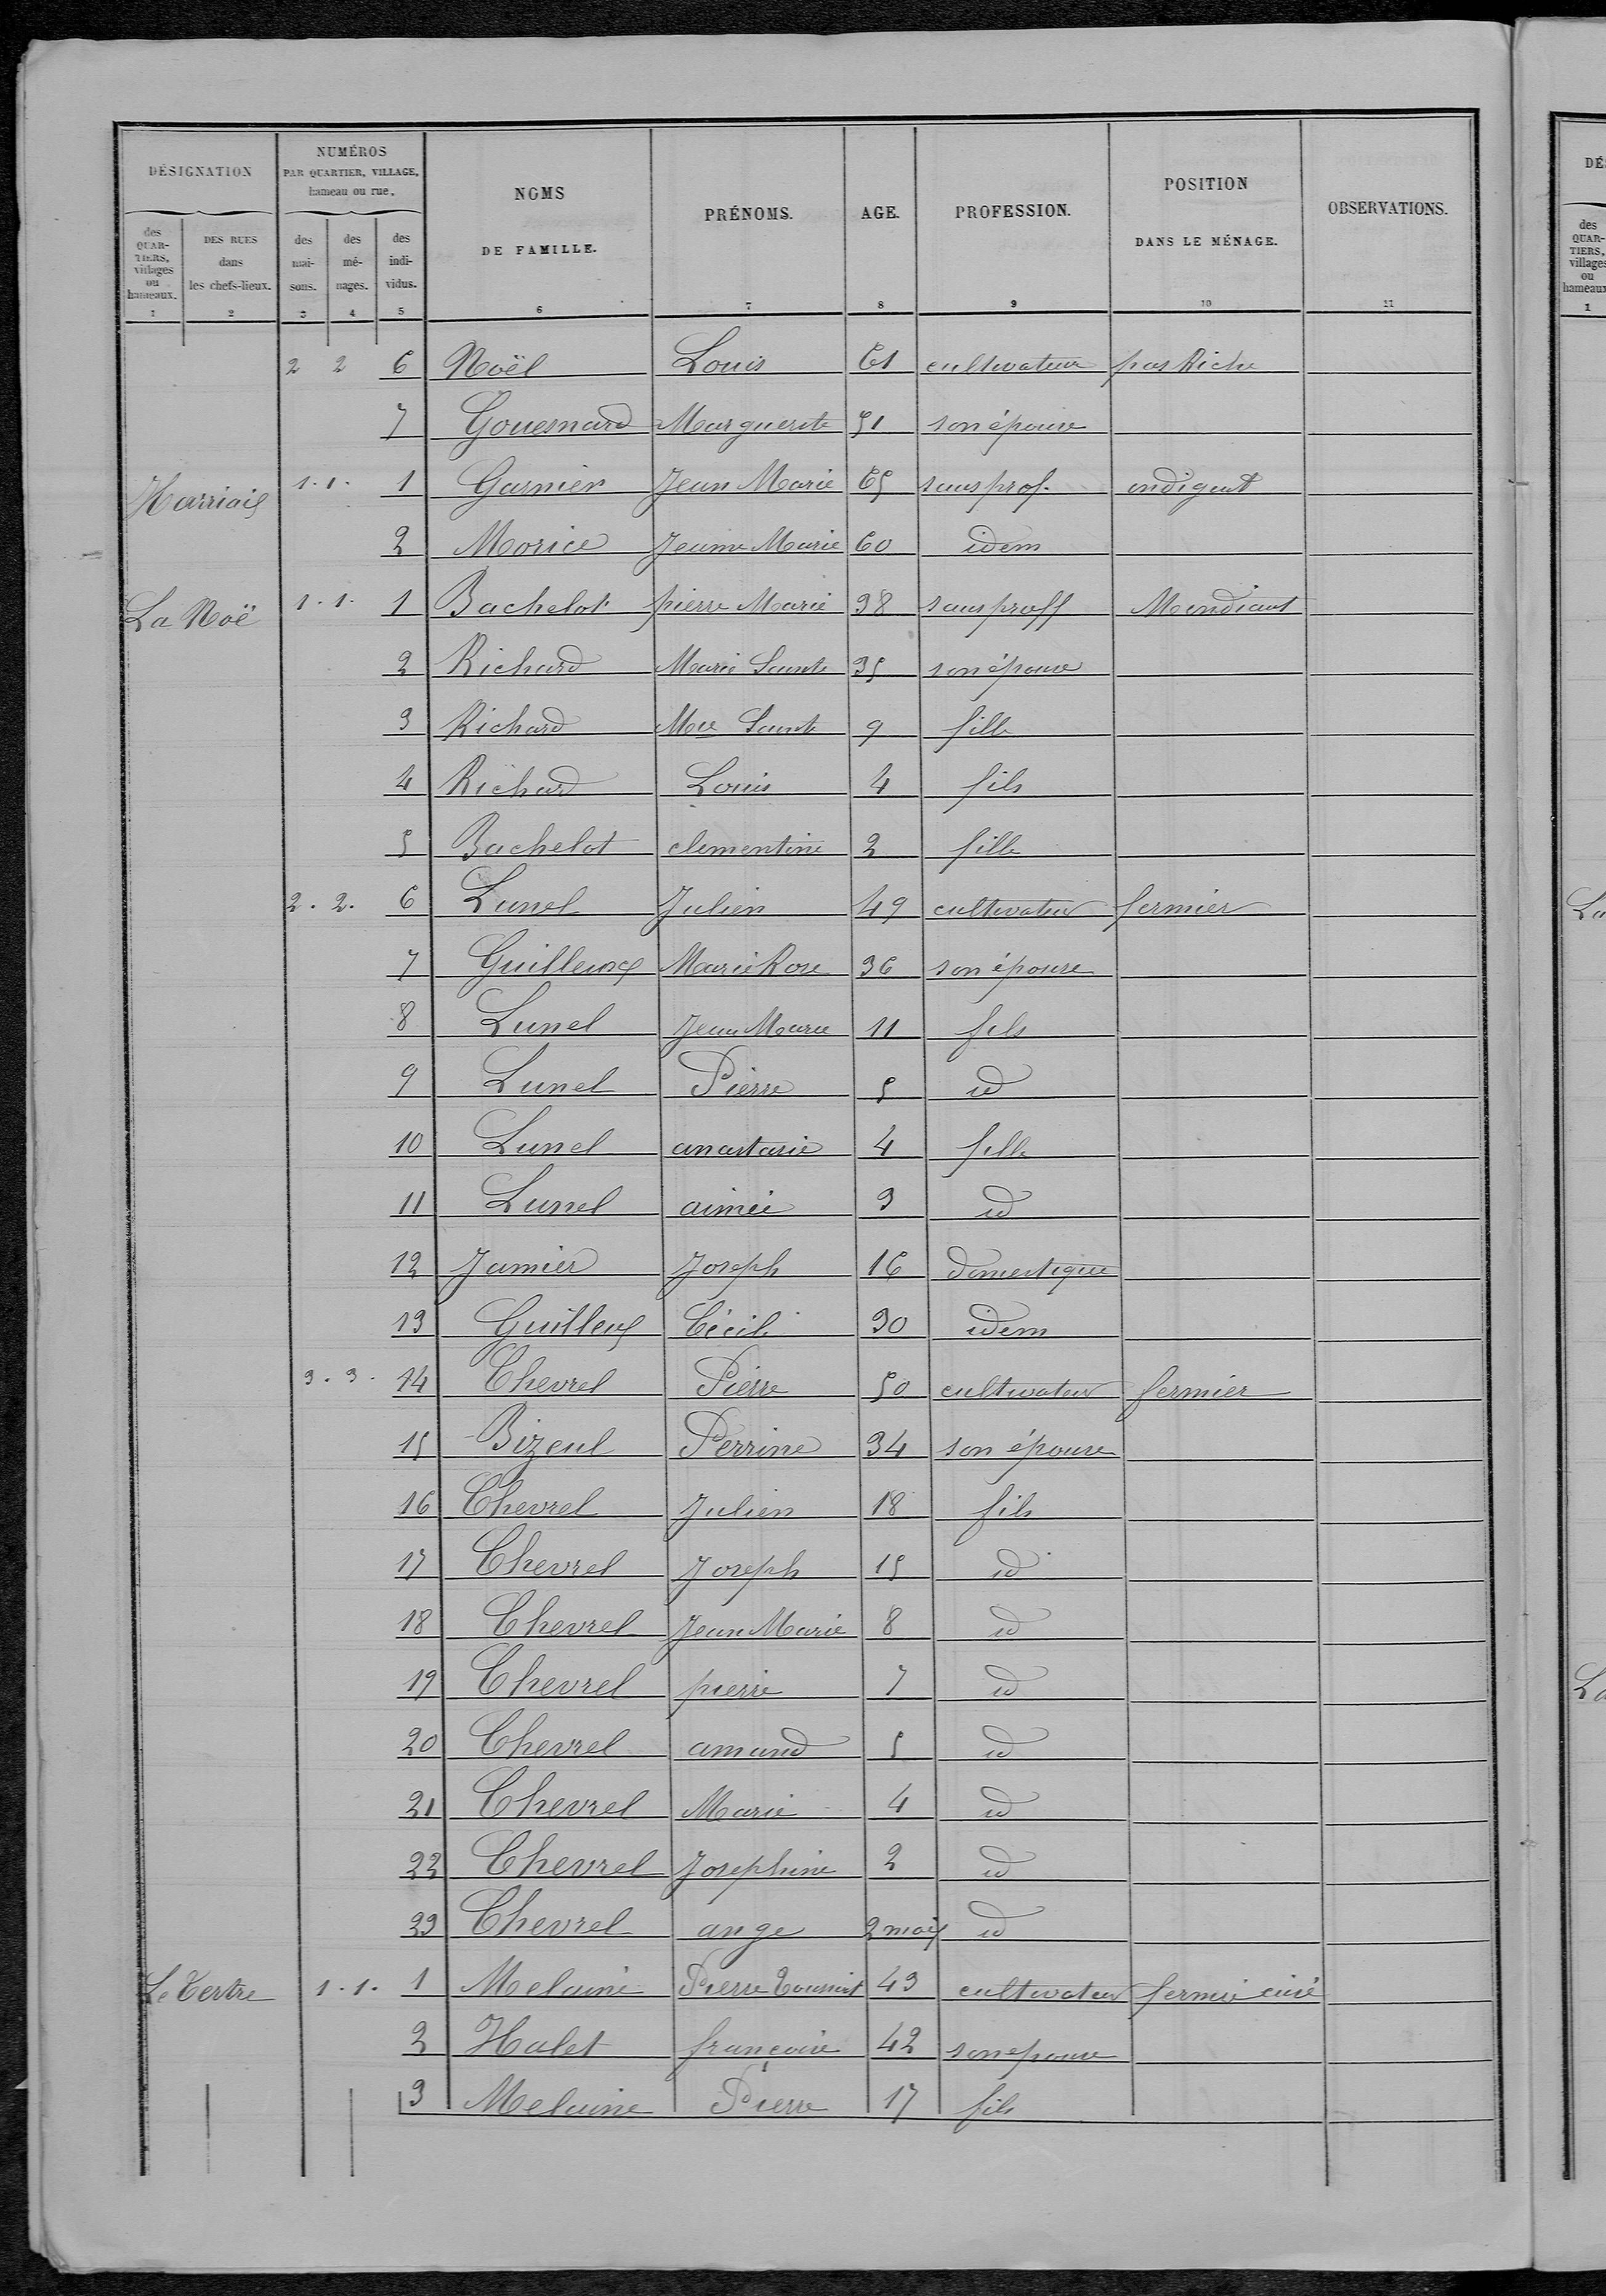 DÉSIGNATION NUMÉROS PAR QUARTIER, VILLAGE, hameau ou rue. NOMS DE FAMILLE. PRÉNOMS. AGE. PROFESSION. POSITION DANS LE MÉNAGE. OBSERVATIONS.
des QUAR-TIERS, villages ou hameaux. DES RUES dans les chefs-lieux. des mai-sons. des mé-nages. des indi-vidus.
1 2 3 4 5 6 7 8 9 10 11
2 2 6 Noël Louis 61 cultivateur pas Riche
7 Gouesnard Marguerite 51 son épouse
Harriais 1. 1. 1 Garnier Jean Marie 65 sans prof. indigent
2 Morice Jeanne Marie 60 idem
La Noë 1. 1. 1 Bachelot pierre Marie 38 sans proff Mendiant
2 Richard Marie Sainte 35 son épouse
3 Richard Mie Sainte 9 fille
4 Richard Louis 4 fils
5 Bachelot clementine 2 fille
2. 2. 6 Lunel Julien 49 cultivateur fermier
7 Guilleux Marie Rose 36 son épouse
8 Lunel Jean Marie 11 fils
9 Lunel Pierre 5 id
10 Lunel anastasie 4 fille
11 Lunel aimée 3 id
12 Jamier Joseph 16 domestique
13 Guilleux Cécile 30 idem
3. 3. 14 Chevrel Pierre 50 cultivateur fermier
15 Bizeul Perrine 34 son épouse
16 Chevrel Julien 18 fils
17 Chevrel Joseph 15 id
18 Chevrel Jean Marie 8 id
19 Chevrel pierre 7 id
20 Chevrel amand 5 id
21 Chevrel Marie 4 id
22 Chevrel Josephine 2 id
23 Chevrel ange 2 mois id
Le Tertre 1. 1. 1 Melaine Pierre Toussaint 43 cultivateur fermier
2 Halet françoise 42 son epouse
3 Melaine Pierre 17 fils
DÉ
des QUAR-TIERS, villages ou hameaux
1
La
La